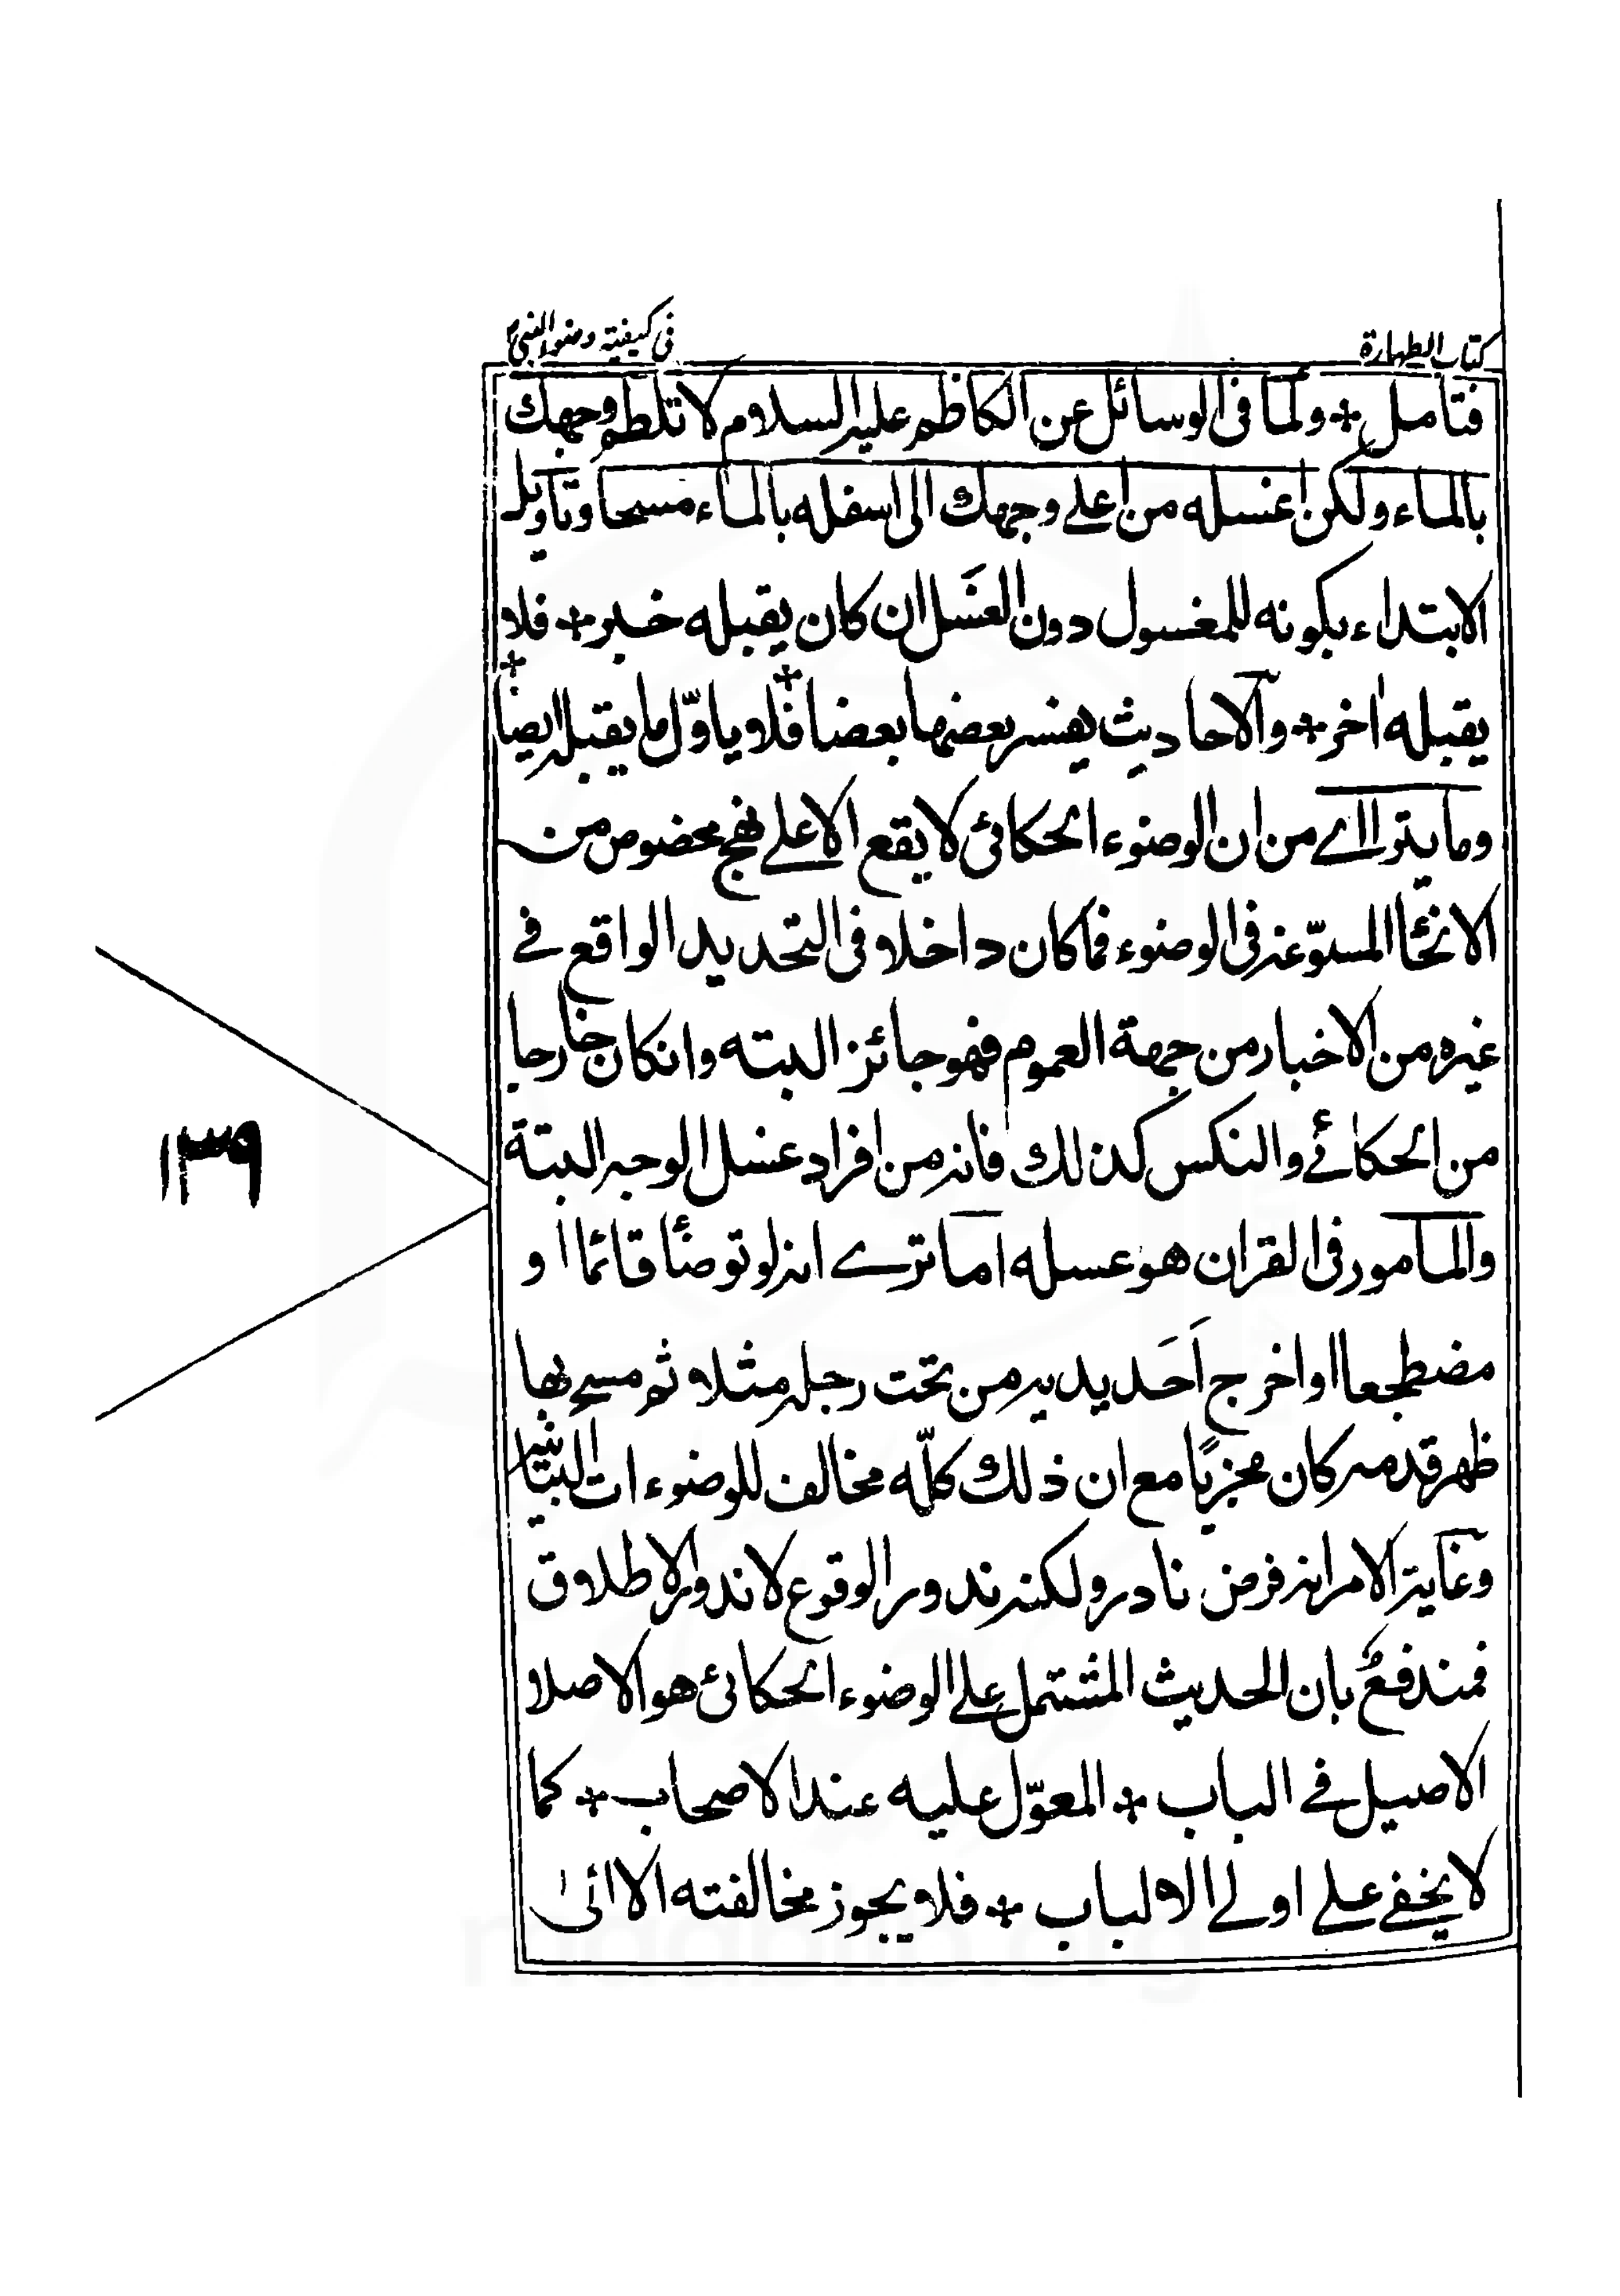 كتاب الطهارة
فى كيفية وضوء النبى
فتامل + ولما فى الوسائل عن الكاظم عليه السلام لا تلطم وجهك
بالماء ولكن اغسله من اعلى وجهك الى اسفله بالماء مسحا وتاويل
الابتداء بكونه للمغسول دون الغسل ان كان يقبله خبر + فلا
يقبله اخر + والاحاديث يفسر بعضها بعضا + فلا ياوّل ما يقبله ايضا +
وما يترااى من ان الوضوء الحكائى لا يقع الا على نهج مخصوص من
الانحا المسوّغة فى الوضوء فما كان داخلا فى التحديد الواقع فى
غيره من الاخبار من جهة العموم فهو جائز البته وانكان خارجا
من الحكائى والنكس كذلك فانه من افراد غسل الوجه البتة
والمامور فى القران هو غسله اما ترى انه لو توضأ قائما او
مضطجعا او اخرج احَد يديه من تحت رجله مثلا ثم مسح بها
ظهر قدمه كان مجزيًا مع ان ذلك كلّه مخالف للوضوءات البيانية
وغاية الامر انه فرض نادر ولكنه ندور الوقوع لا ندور الاطلاق
فمندفعٌ بان الحديث المشتمل على الوضوء الحكائى هو الاصلا
الاصيل فى الباب + المعوّل عليه عند الاصحاب + كما
لا يخفى على اولى الالباب + فلا يجوز مخالفته الا الى
١٣٩